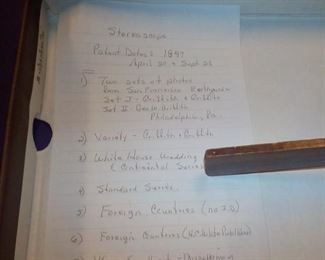 Stereoscope
Patent Dates: 1897
April 20 & Sept 28
1) Two sets of photos
from San Francisco Earthquake
Set I - Griffith & Griffith
Set II - Griffith
Philadelphia, Pa.
2) Variety - Griffith & Griffith
3) White House Wedding
(Continental Series
4) Standard Series
5) Foreign Countries (no I.D.)
6) Foreign Countries (H.C. White Publisher)
7)